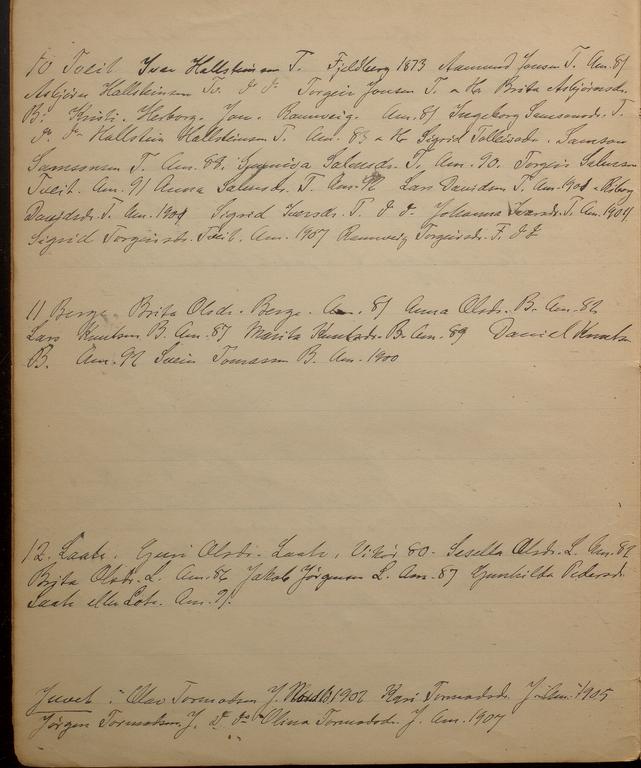 10 Tveit Ivar Hallsteinson T. Fjeldberg 1873 Aamund Jonson T. Am. 81
Asbjørn Hallsteinson Tv. d d. Torgeir Jonson T. o Ko Brita Asbjørnsdr.
B: Kristi. Herborg. Jon. Rannveig. Am. 81 Ingeborg Samsonsd. T.
d. do Hallstein Hallsteinson T. Am. 83 o K Sigrid Tolleivsdr. Samson
Samsonson T. Am. 89. Salmdr. T. Am. 90. Torgeir Salmson
Tveit. Am. 91 Anna Salmdr. T. Am. 92 Lars Davidson T. Am. 1901
Davidsdr. T. Am. 1901 Sigrid Ivarsdr. T. d d. Johanna Ivarsdr. T. Am. 1904
Sigrid Torgeirsdr. Tveit. Am. 1907 Rannveig Torgeirsdr. T. d d
11 Berge Brita Olsdr. Berge. Am. 81 Anna Olsdr. B. Am. 82
Lars Knutson B. Am. 87 Marita Knutsdr. B. Am. 89 Daniel Knutson
B. Am. 92 Svein Tomasson B. Am. 1900
12. Laate. Guri Olsdr. Laate, Vikør 80. Sesella Olsdr. L. Am. 82
Brita Olsdr. L. Am. 86 Jakob Jørgenson L. Am. 87 Gunhilda Pedersdr.
Laate eller Lote. Am. 91.
Juvet: Olav Tormodson J. 1902 Kari Tormodsdr. J. Am. 1905
Jørgen Tormodson J. d. do Olina Tormodsdr. J. Am. 1907